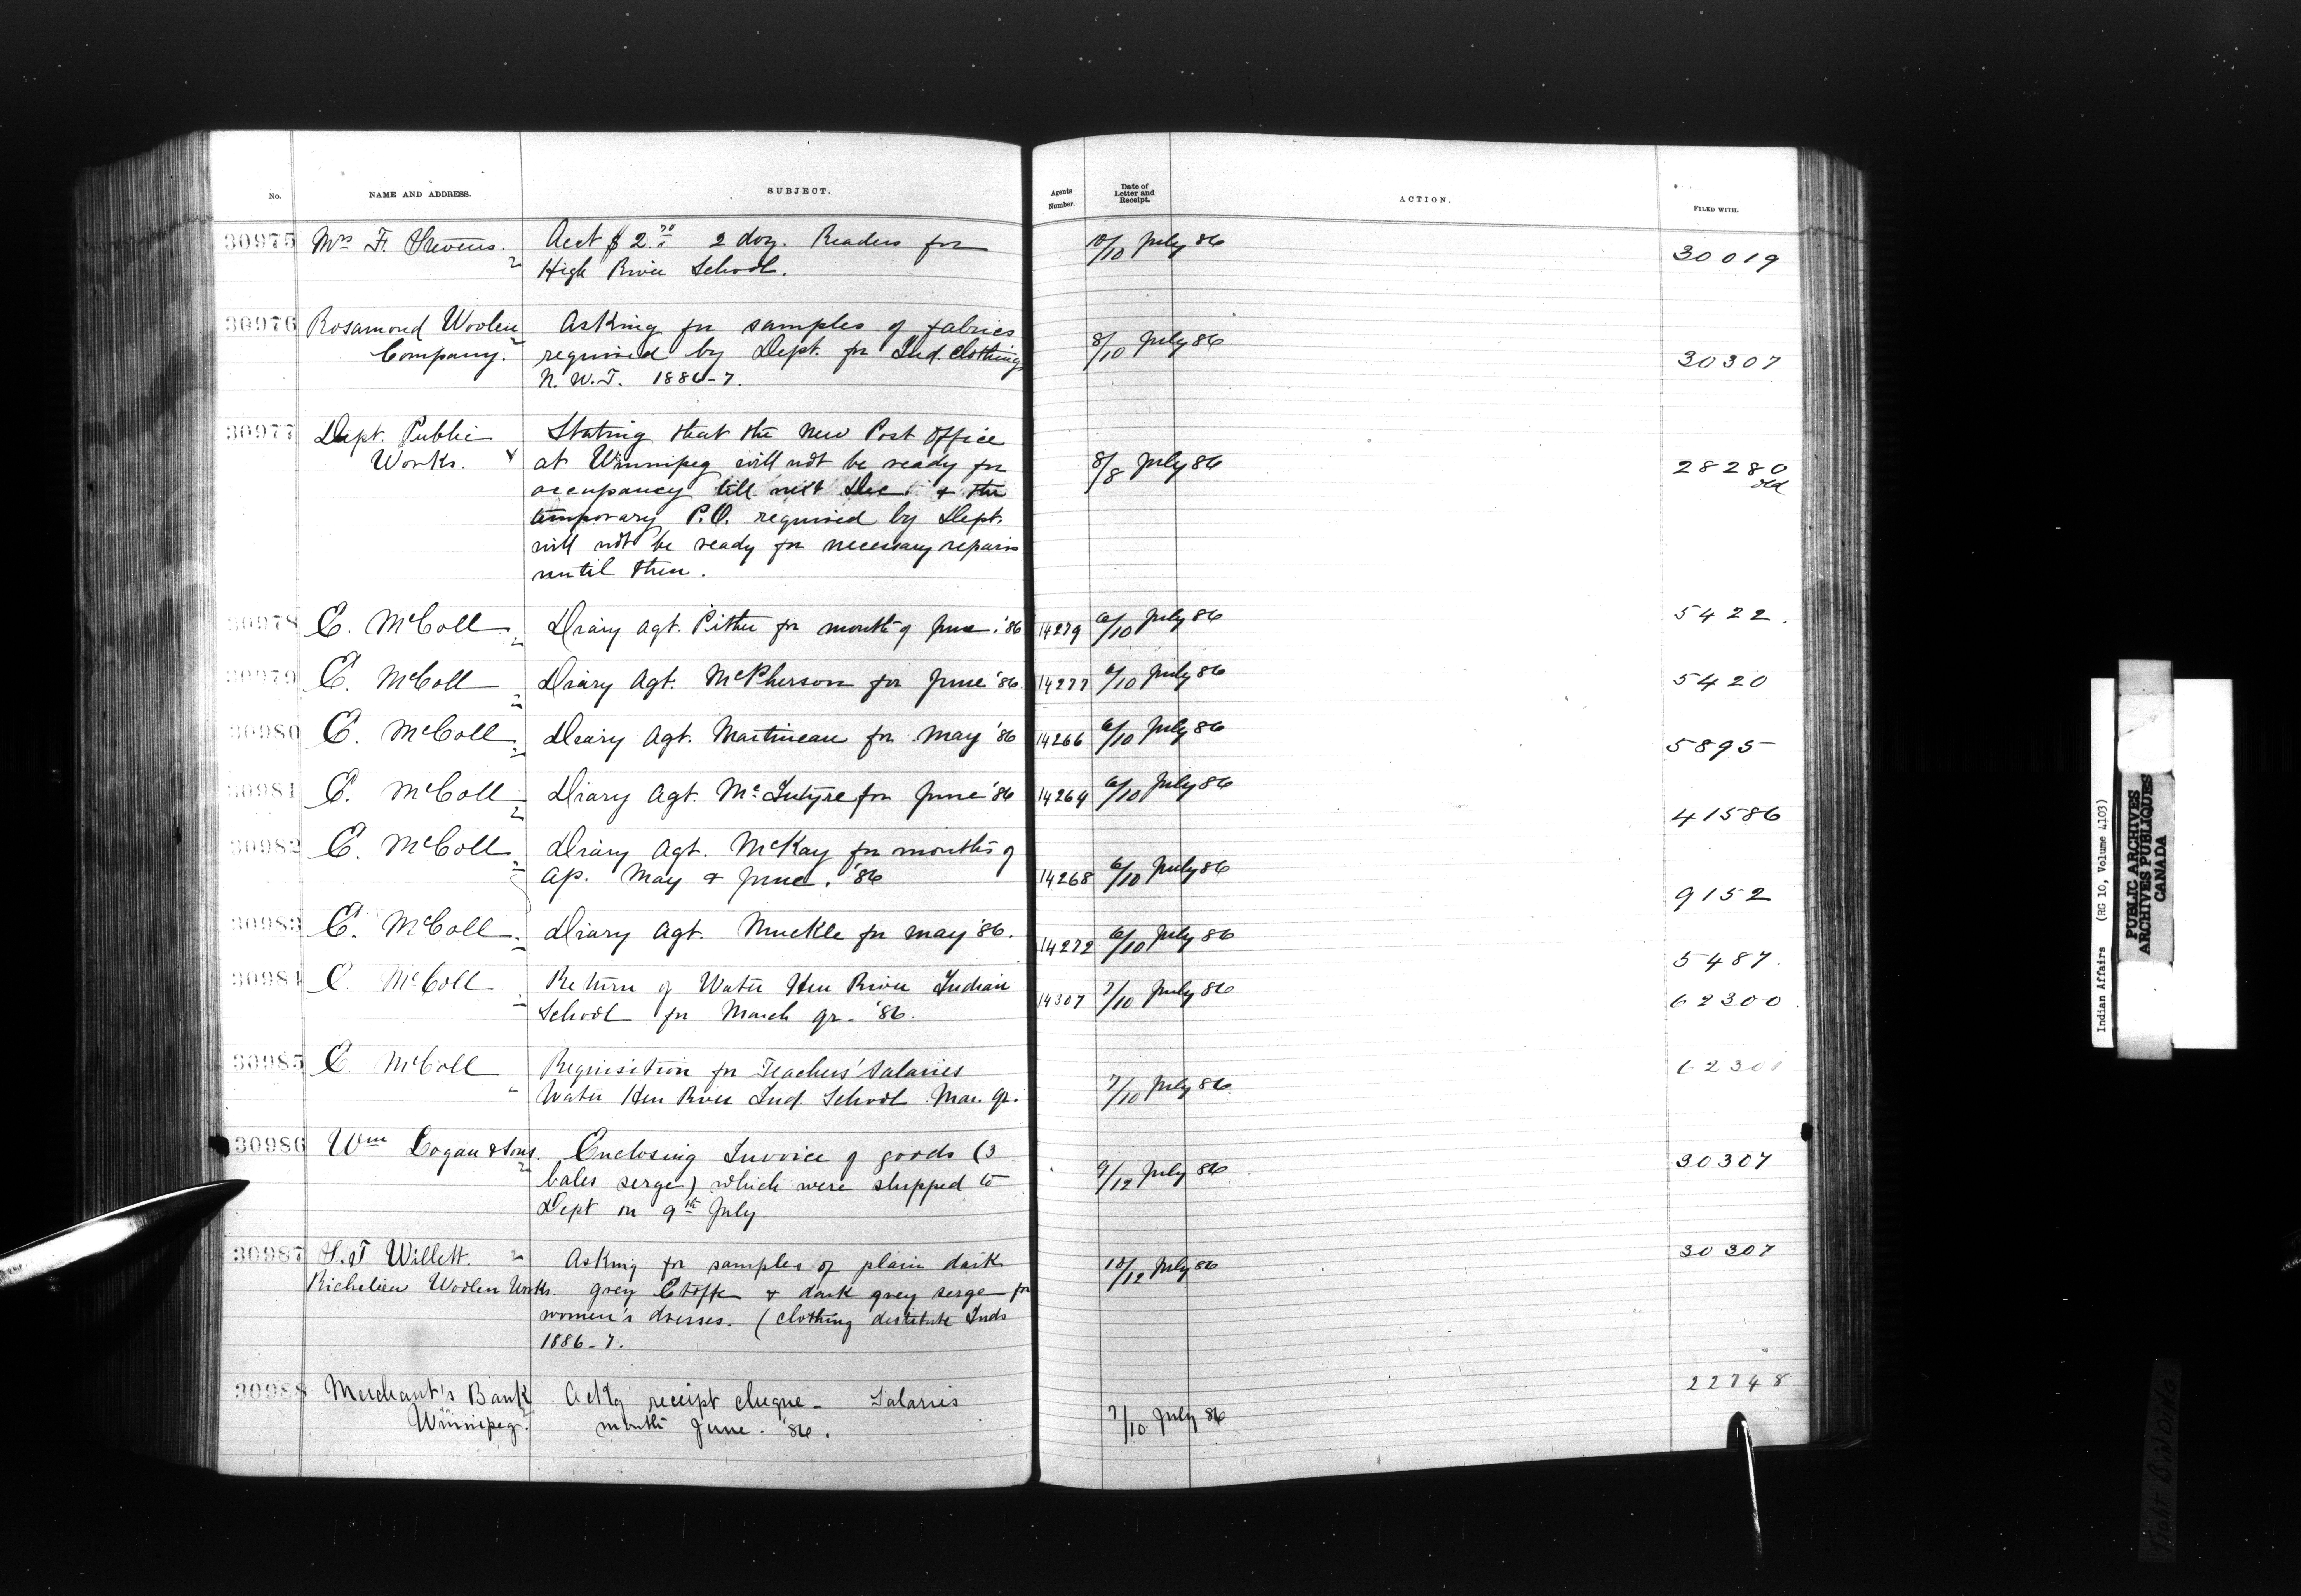 No. NAME AND ADDRESS. SUBJECT. Agents Number. Date of Letter and Receipt. ACTION. FILED WITH.
30975 Mrs F. Stevens. Acct $2.70 2 doz. Readers for 10/10 July 86 30019
High River School.
30976 Rosamond Woolen Asking for samples of fabrics 8/10 July 86 30307
Company. required by Dept. for Ind. Clothing
N. W. T. 1886-7.
30977 Dept. Public Stating that the new Post Office
Works. at Winnipeg will not be ready for 8/8 July 86 28280
occupancy till next Dec & the old
temporary P.O. required by Dept.
will not be ready for necessary repairs
until then.
30978 E. McColl Diary Agt. Pither for month of June. '86 14279 6/10 July 86 5422.
30979 E. McColl Diary Agt. McPherson for June '86. 14277 6/10 July 86 5420
30980 E. McColl Diary Agt. Martineau for May '86 14266 6/10 July 86 5895
30981 E. McColl Diary Agt. McIntyre for June '86 14264 6/10 July 86 41586
30982 E. McColl Diary Agt. McKay for months of
Ap. May & June. '86 14268 6/10 July 86 9152
30983 E. McColl Diary Agt. Muckle for May '86. 14272 6/10 July 86 5487.
30984 E. McColl Return of Water Hen River Indian 14307 7/10 July 86 62300.
School for March qr. '86.
30985 E. McColl Requisition for Teachers' Salaries 62301
Water Hen River Ind. School Mar. qr. 7/10 July 86
30986 Wm Logan & Sons. Enclosing Invoice of goods (3 9/12 July 86 30307
bales serge) which were shipped to
Dept on 9th July
30987 Willett. Asking for samples of plain dark 10/12 July 86 30307
Richelieu Woolen Works. grey Etoffe & dark grey serge for
women's dresses. (clothing destitute Inds
1886-7.
30988 Merchant's Bank Ackg receipt cheque - Salaries 22748
Winnipeg. month June. '86. 7/10 July 86
Indian Affairs (RG 10, Volume 4103)
PUBLIC ARCHIVES
ARCHIVES PUBLIQUES
CANADA
Tight BINDING